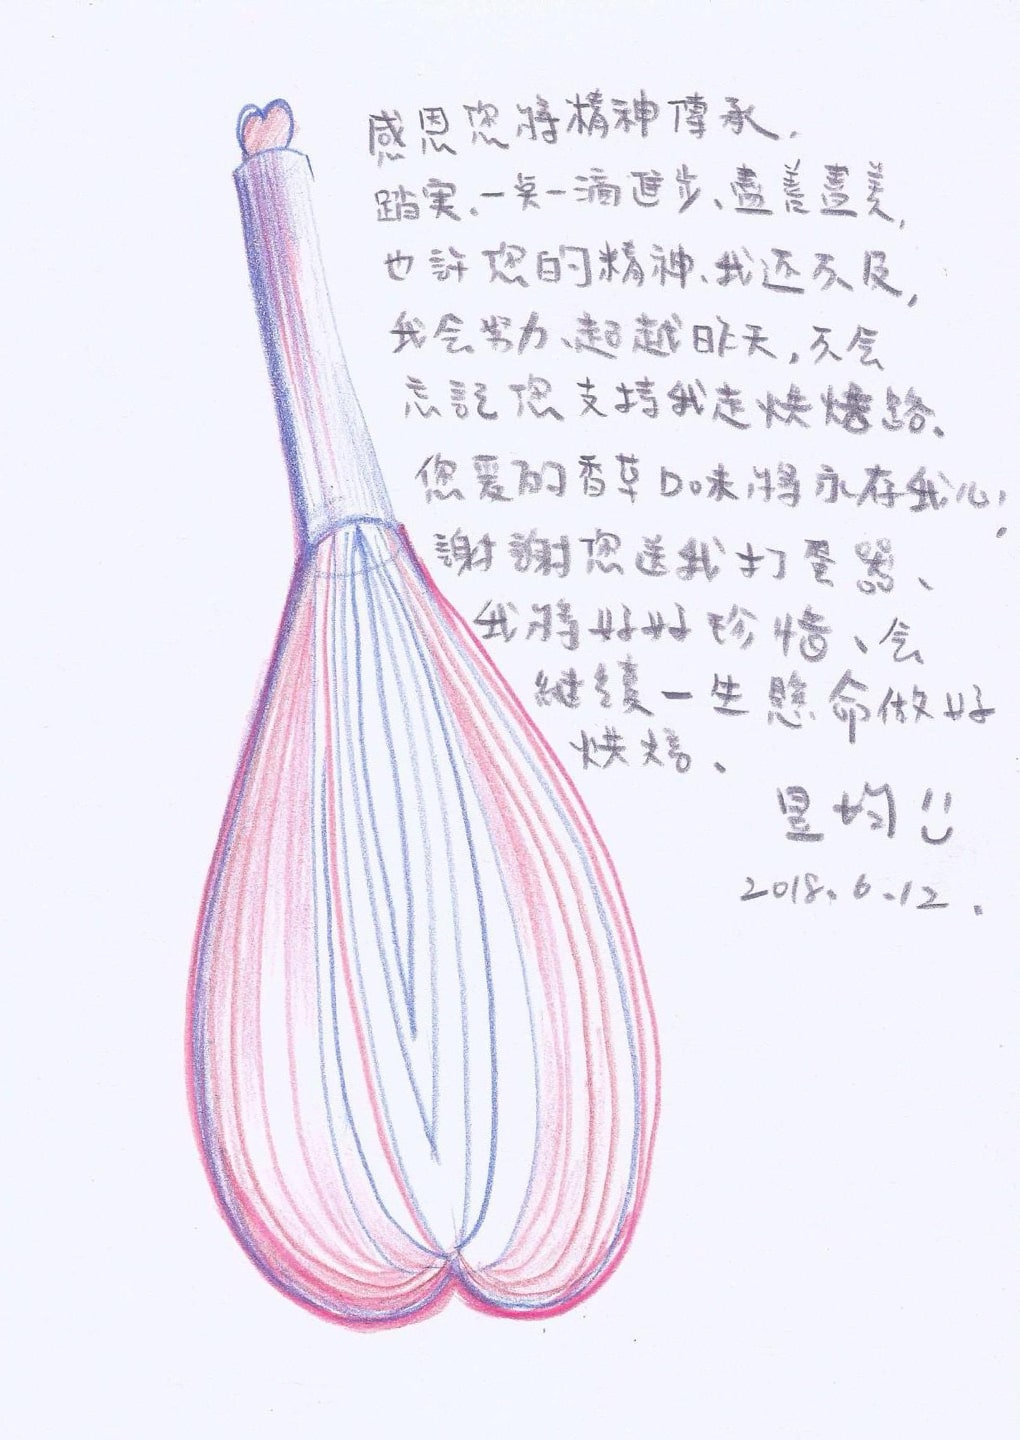 感恩您將精神傳承.
踏実、一桌一滴進步、盡善盡美,
也許您的精神、我还不及,
我会努力、超越昨天,不会
忘記您支持我走烘焙路、
您爱的香草口味將永存我心,
謝謝您送我打蛋器、
我將好好珍惜、会
継續一生懸命做好
烘焙、
昱均
2018.6.12.